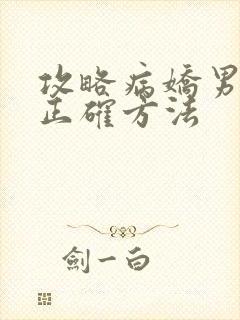 攻略病嬌男
正確方法
劍一白